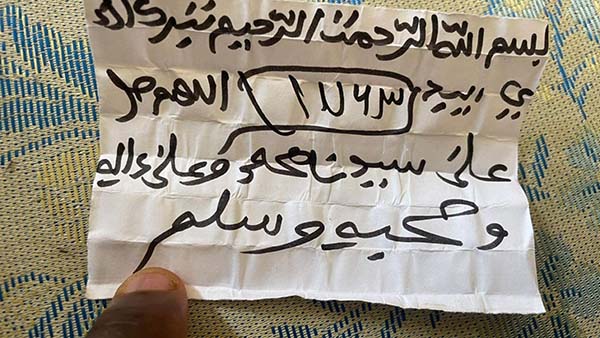 بسم الله الرحمن الرحيم تبرك الذ
ي بيد اللهم صل
على سيدنا محمد وعلى ءاله
وصحبه وسلم